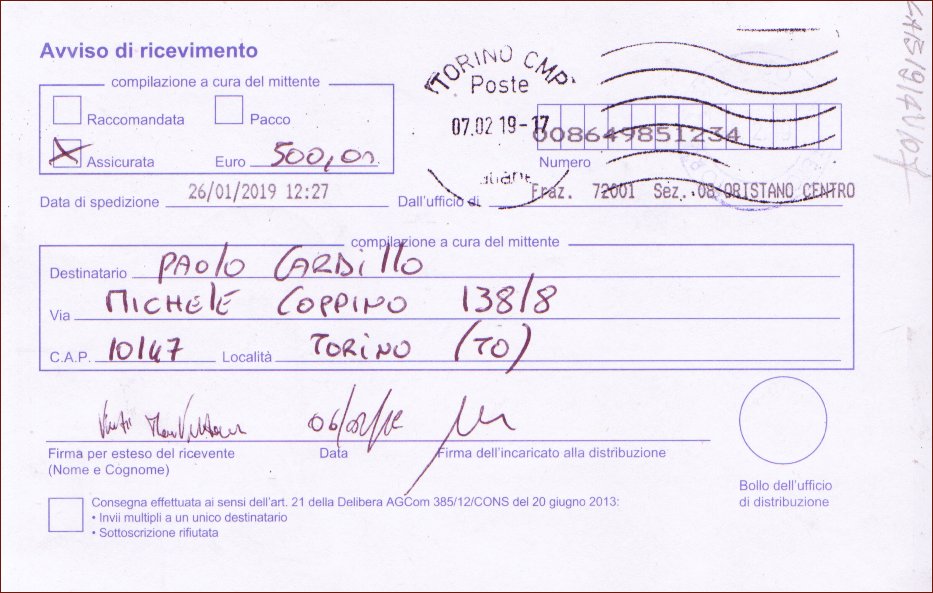 Avviso di ricevimento
compilazione a cura del mittente
Raccomandata Pacco
Assicurata Euro 500,00
TORINO CMP
Poste
07.02 19-17
008649851234
Numero
Data di spedizione 26/01/2019 12:27 Dall'ufficio di Fraz. 72001 Sez. 08 ORISTANO CENTRO
compilazione a cura del mittente
Destinatario PAOLO CARDILLO
Via MICHELE COPPINO 138/8
C.A.P. 10147 Località TORINO (TO)
Firma per esteso del ricevente
(Nome e Cognome)
Data
Firma dell'incaricato alla distribuzione
Bollo dell'ufficio
di distribuzione
Consegna effettuata ai sensi dell'art. 21 della Delibera AGCom 385/12/CONS del 20 giugno 2013:
• Invii multipli a un unico destinatario
• Sottoscrizione rifiutata